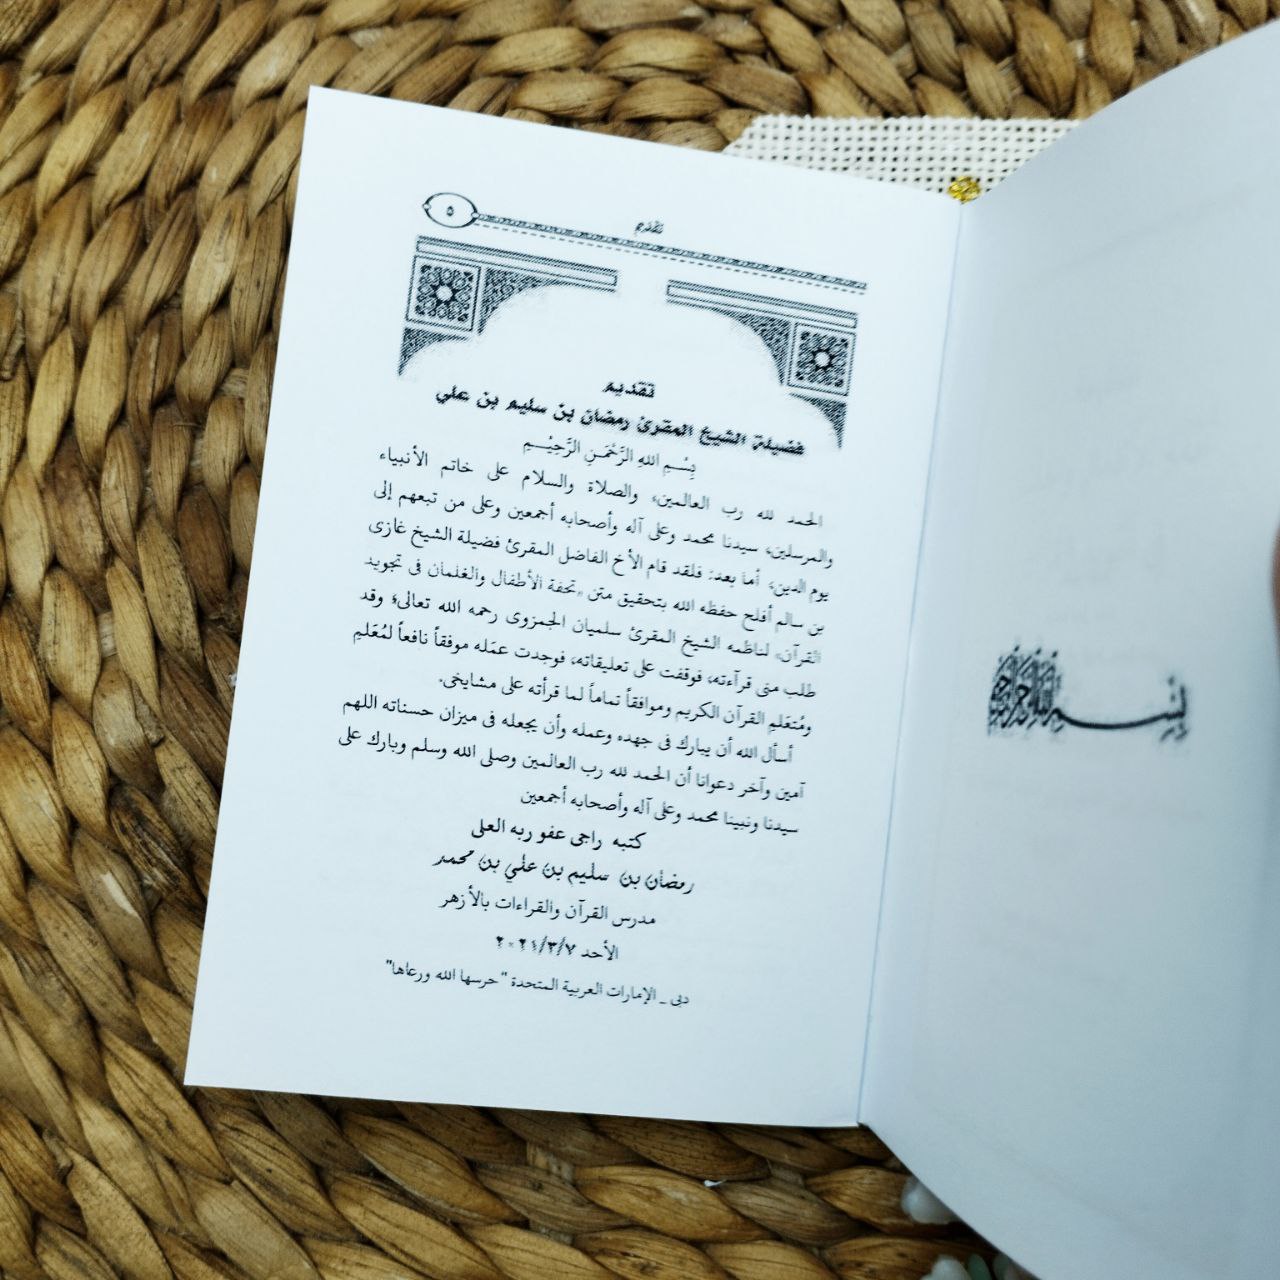 بسم الله الرحمن الرحيم
تقديم
٥
تقديم
فضيلة الشيخ المقرئ رمضان بن سليم بن علي
بِسْمِ اللهِ الرَّحْمَنِ الرَّحِيْمِ
الحمد لله رب العالمين، والصلاة والسلام على خاتم الأنبياء
والمرسلين، سيدنا محمد وعلى آله وأصحابه أجمعين وعلى من تبعهم إلى
يوم الدين، أما بعد: فلقد قام الأخ الفاضل المقرئ فضيلة الشيخ غازى
بن سالم أفلح حفظه الله بتحقيق متن «تحفة الأطفال والغلمان فى تجويد
القرآن» لناظمه الشيخ المقرئ سلميان الجمزوى رحمه الله تعالى؛ وقد
طلب منى قرآءته، فوقفت على تعليقاته، فوجدت عمَله موفقاً نافعاً لمُعَلمِ
ومُتعَلمِ القرآن الكريم وموافقاً تماماً لما قرأته على مشايخى.
أسأل الله أن يبارك فى جهده وعمله وأن يجعله فى ميزان حسناته اللهم
آمين وآخر دعوانا أن الحمد لله رب العالمين وصلى الله وسلم وبارك على
سيدنا ونبينا محمد وعلى آله وأصحابه أجمعين
كتبه راجى عفو ربه العلى
رمضان بن سليم بن علي بن محمد
مدرس القرآن والقراءات بالأزهر
الأحد ٢٠٢١/٣/٧
دبى _ الإمارات العربية المتحدة "حرسها الله ورعاها"